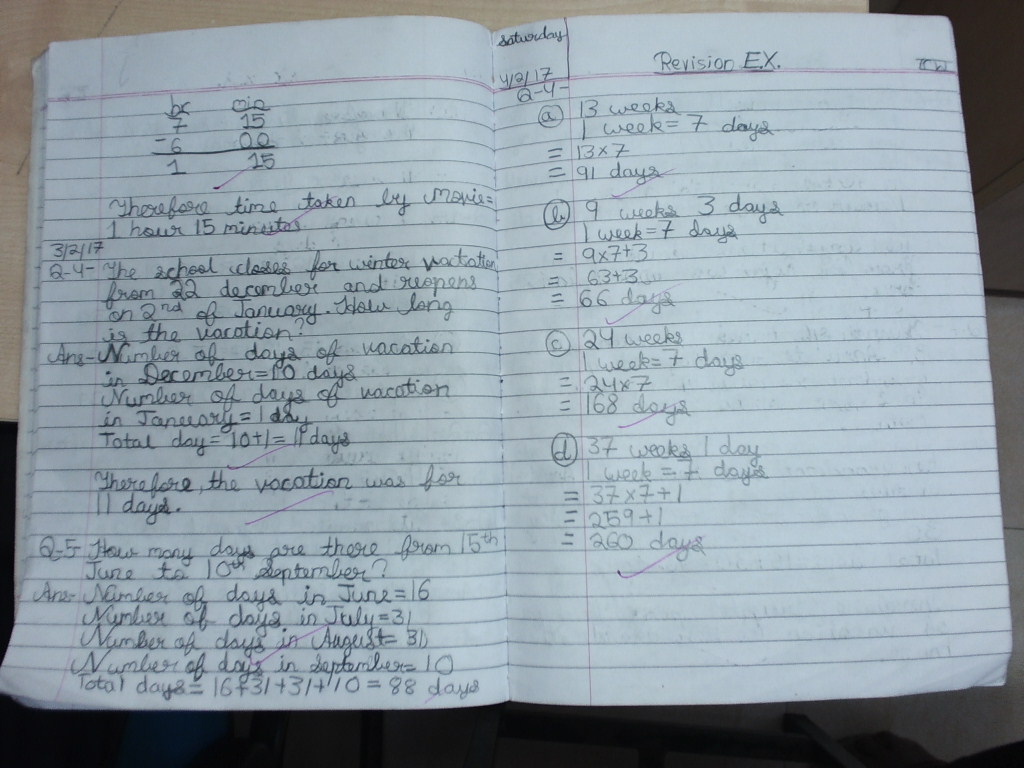 hr min
7 15
- 6 00
1 15
Therefore time taken by Movie=
1 hour 15 minutes.
3/2/17
Q-4- The school closes for winter vactation
from 22 december and reopens
on 2nd of January. How long
is the vacation?
Ans- Number of days of vacation
in December=10 days
Number of days of vacation
in January=1 day
Total day= 10+1= 11 days
Therefore, the vacation was for
11 days.
Q-5- How many days are there from 15th
June to 10th september?
Ans- Number of days in June=16
Number of days in July=31
Number of days in August= 31
Number of days in september= 10
Total days= 16+31+31+10 = 88 days
Saturday
4/2/17
Revision EX.
Q-4-
(a) 13 weeks
1 week= 7 days
= 13x7
= 91 days
(b) 9 weeks 3 days
1 week=7 days
= 9x7+3
= 63+3
= 66 days
(c) 24 weeks
1 week=7 days
= 24x7
= 168 days
(d) 37 weeks 1 day
1 week=7 days
= 37x7+1
= 259+1
= 260 days